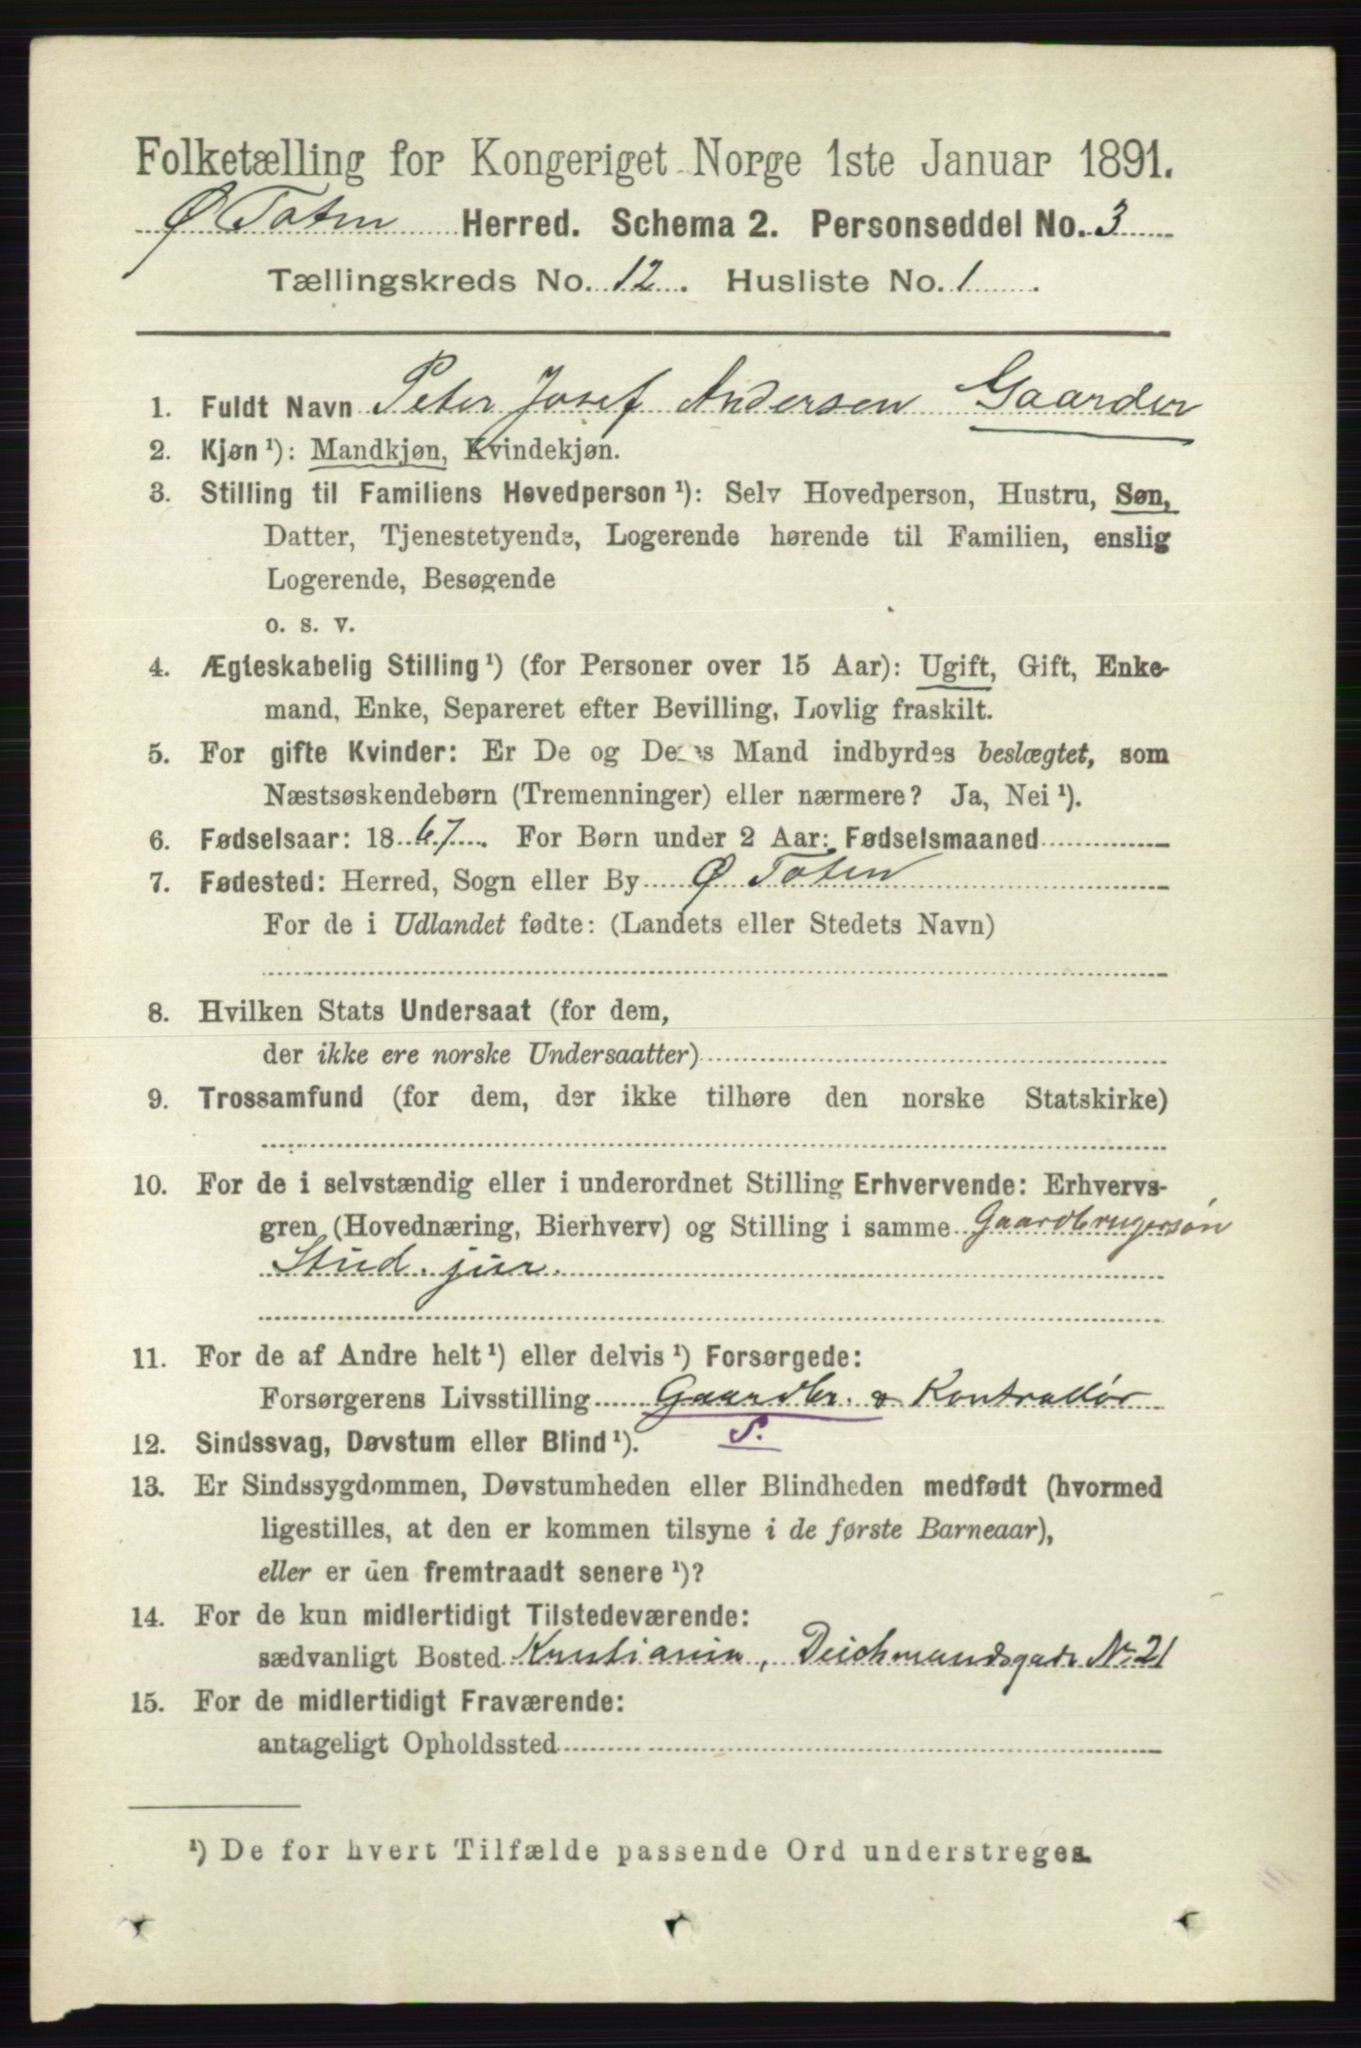 Folketælling for Kongeriget Norge 1ste Januar 1891.
Ø Toten Herred. Schema 2. Personseddel No. 3
Tællingskreds No. 12. Husliste No. 1.
1. Fuldt Navn Peter Josef Andersen Gaarder
2. Kjøn ¹): Mandkjøn, Kvindekjøn.
3. Stilling til Familiens Hovedperson ¹): Selv Hovedperson, Hustru, Søn,
Datter, Tjenestetyende, Logerende hørende til Familien, enslig
Logerende, Besøgende
o. s. v.
4. Ægteskabelig Stilling ¹) (for Personer over 15 Aar): Ugift, Gift, Enke-
mand, Enke, Separeret efter Bevilling, Lovlig fraskilt.
5. For gifte Kvinder: Er De og Deres Mand indbyrdes beslægtet, som
Næstsøskendebørn (Tremenninger) eller nærmere? Ja, Nei ¹).
6. Fødselsaar: 1867. For Børn under 2 Aar: Fødselsmaaned
7. Fødested: Herred, Sogn eller By Ø Toten
For de i Udlandet fødte: (Landets eller Stedets Navn)
8. Hvilken Stats Undersaat (for dem,
der ikke ere norske Undersaatter)
9. Trossamfund (for dem, der ikke tilhøre den norske Statskirke)
10. For de i selvstændig eller i underordnet Stilling Erhvervende: Erhvervs-
gren (Hovednæring, Bierhverv) og Stilling i samme Gaardbrugersøn
Stud. jur.
11. For de af Andre helt ¹) eller delvis ¹) Forsørgede:
Forsørgerens Livsstilling Gaardbr. & Kontrollør
S.
12. Sindssvag, Døvstum eller Blind ¹).
13. Er Sindssygdommen, Døvstumheden eller Blindheden medfødt (hvormed
ligestilles, at den er kommen tilsyne i de første Barneaar),
eller er den fremtraadt senere ¹)?
14. For de kun midlertidigt Tilstedeværende:
sædvanligt Bosted Kristiania, Deichmandsgade No 21
15. For de midlertidigt Fraværende:
antageligt Opholdssted
¹) De for hvert Tilfælde passende Ord understreges.